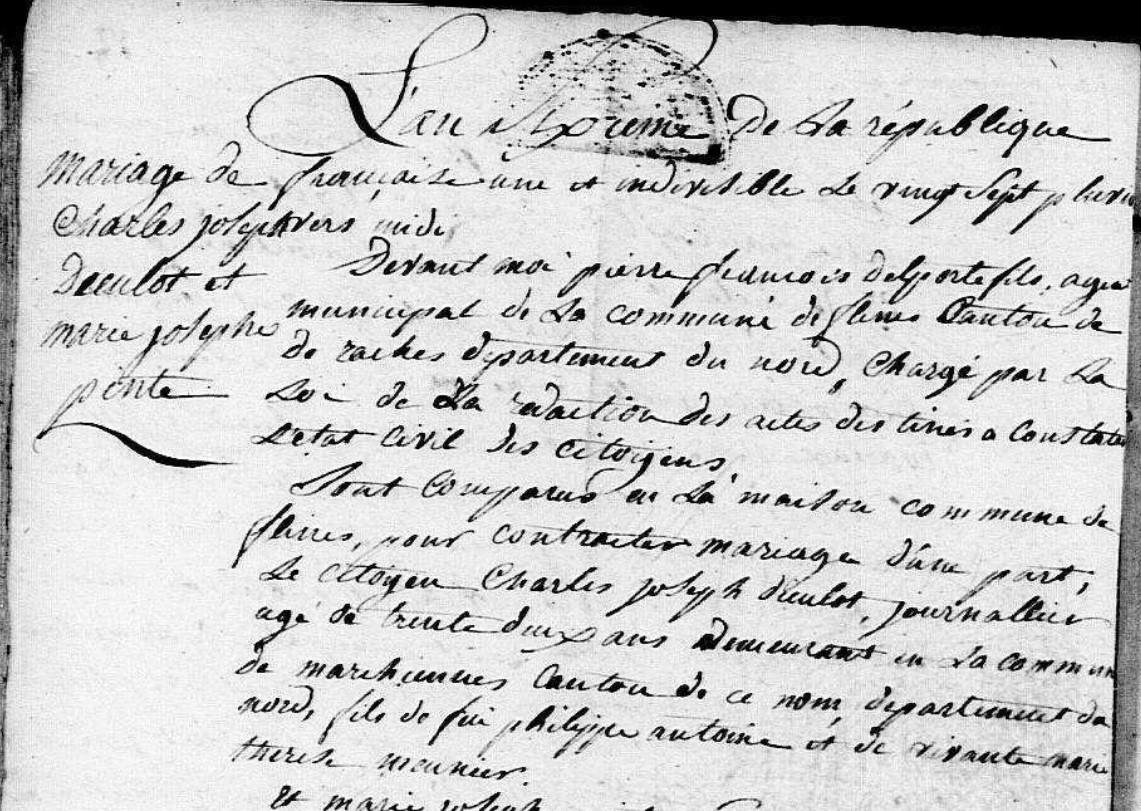 mariage de
Charles joseph
Dculot et
marie josephe
pinte
L'an Sixieme De La république
françoise une et indivisible Le vingt Sept pluvio
vers midi
Devant moi pierre françois delporte fils, agent
municipal de La commune de flines Canton de
de raches departement du nord, Chargé par La
Loi de La redaction des actes destinés a Constater
L'etat Civil des Citoigens
Sont Comparus en La maison commune de
flines, pour contracter mariage d'une part,
Le Citoyen Charles joseph Dculot, journallier
agé de trente deux ans Demeurant en La commune
de marchiennes Canton de ce nom, departement du
nord, fils de feu philippe antoine et de vivante marie
therese meunier.
Et marie joseph